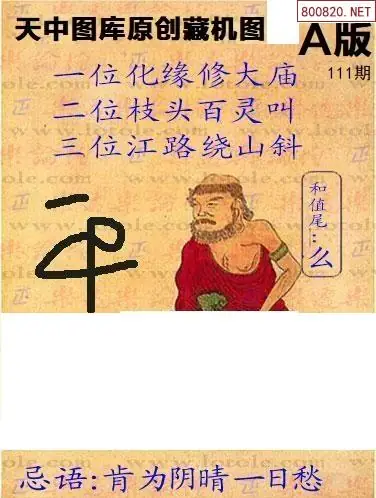 800820.NET
天中图库原创藏机图
A版
111期
一位化缘修大庙
二位枝头百灵叫
三位江路绕山斜
和值尾:么
忌语:肯为阴晴一日愁